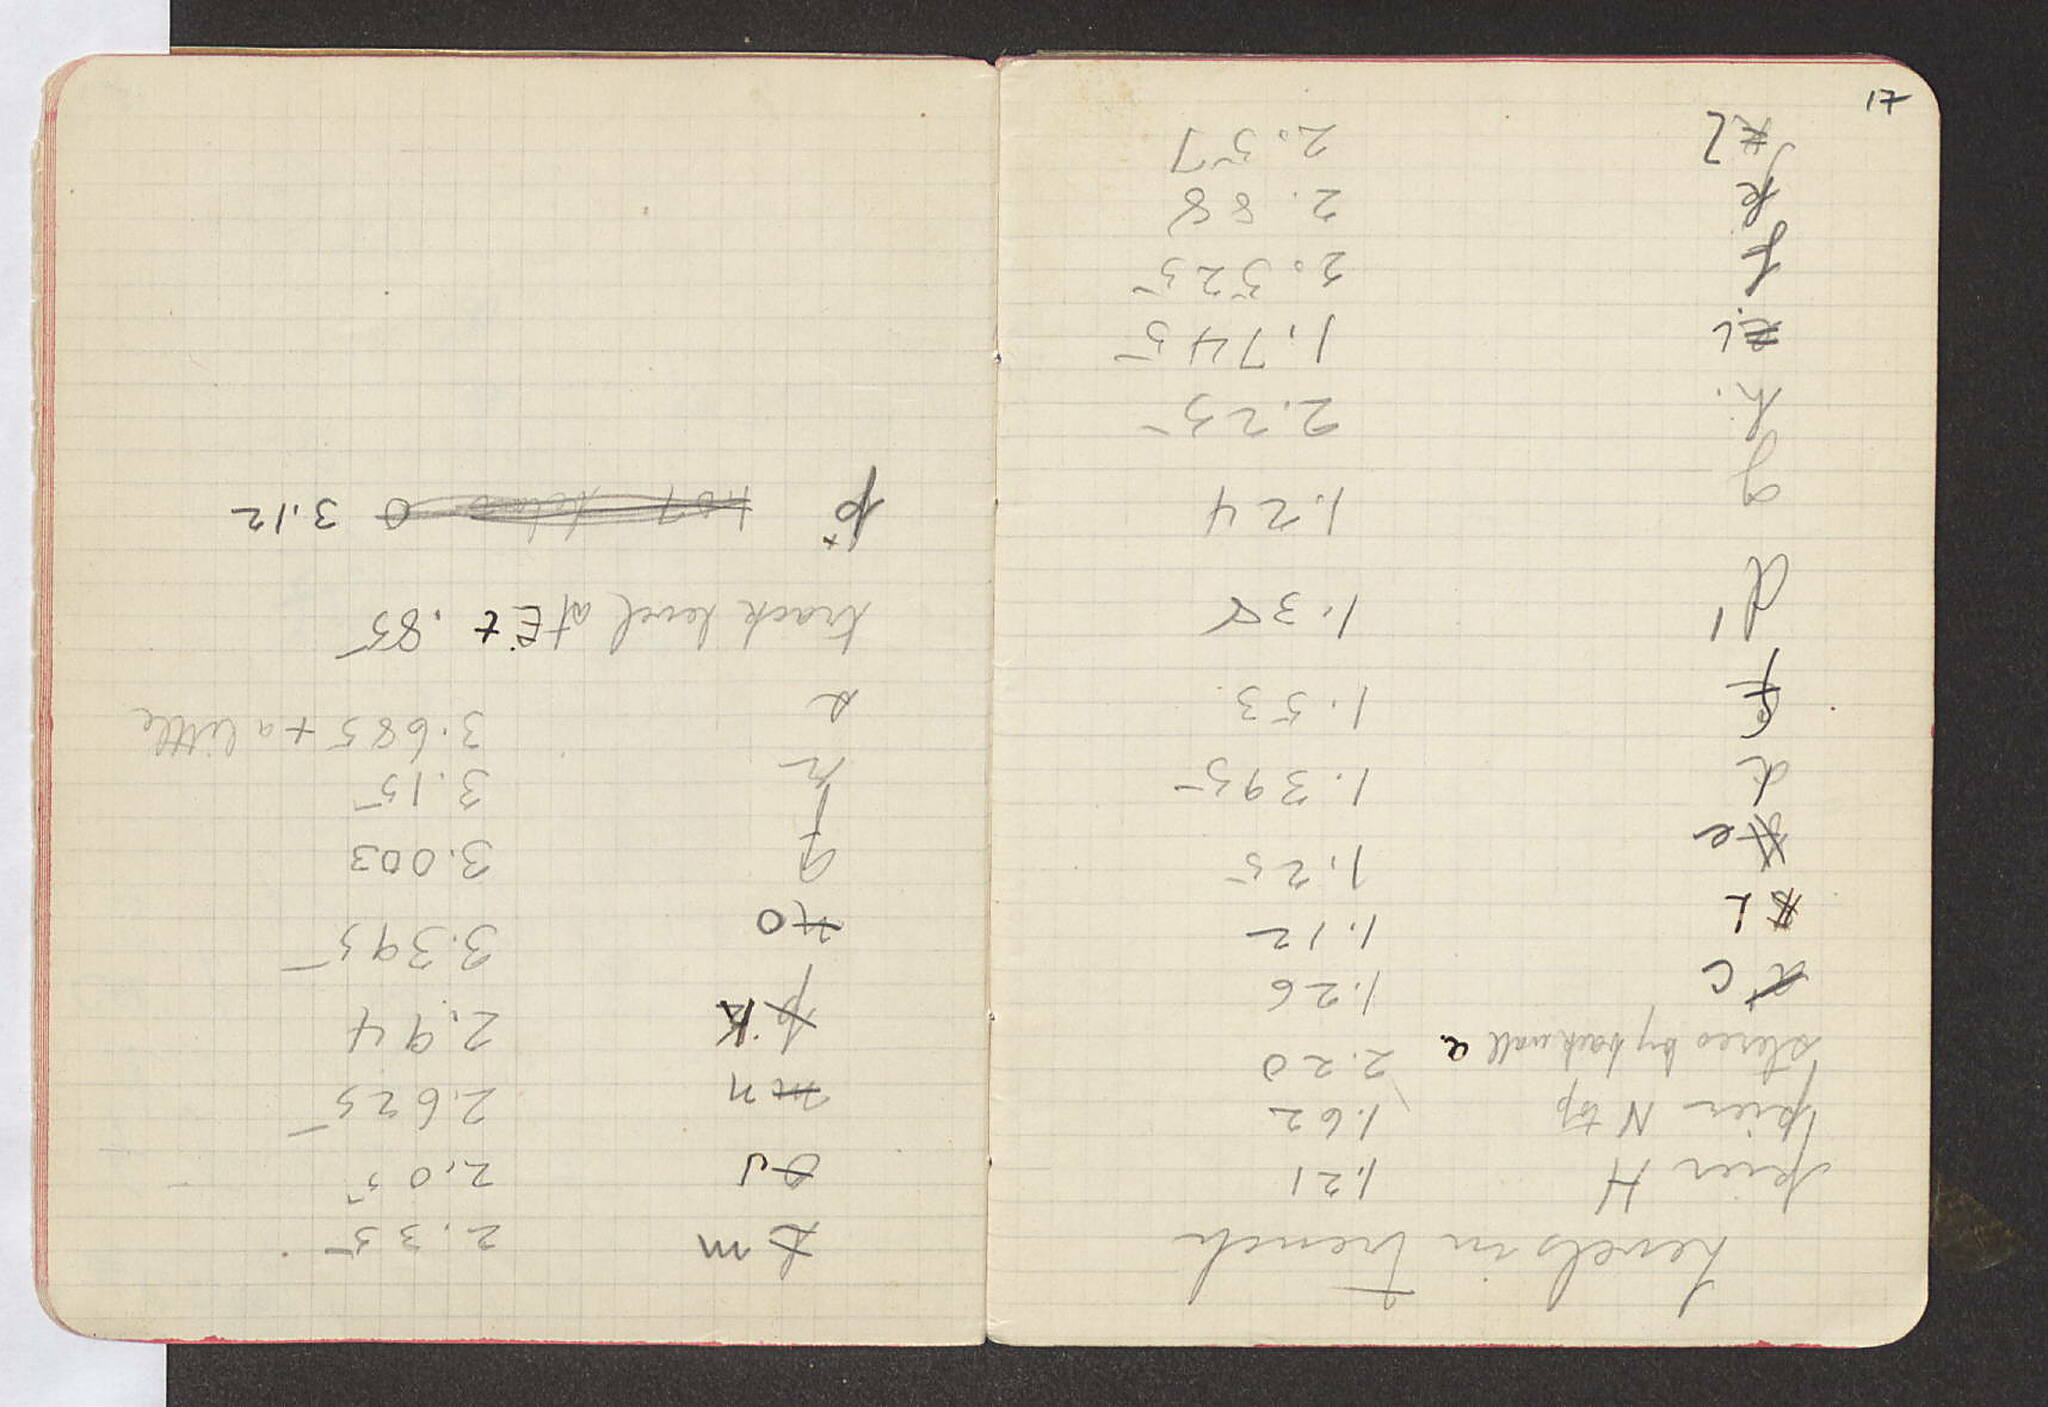 17
Levels in Trench
pier H 1.21
pier N top 1.62
stereo by back wall a. 2.20
c 1.26
L 1.12
e 1.25
d 1.395
f 1.53
d' 1.38
g 1.24
h. 2.25
i 1.745
j 2.525
k 2.88
l 2.57
m 2.35
J 2.05
n 2.625
p K 2.94
n o 3.395
q 3.003
r 3.15
s 3.685 + a little
track level at E t .85
p 3.12